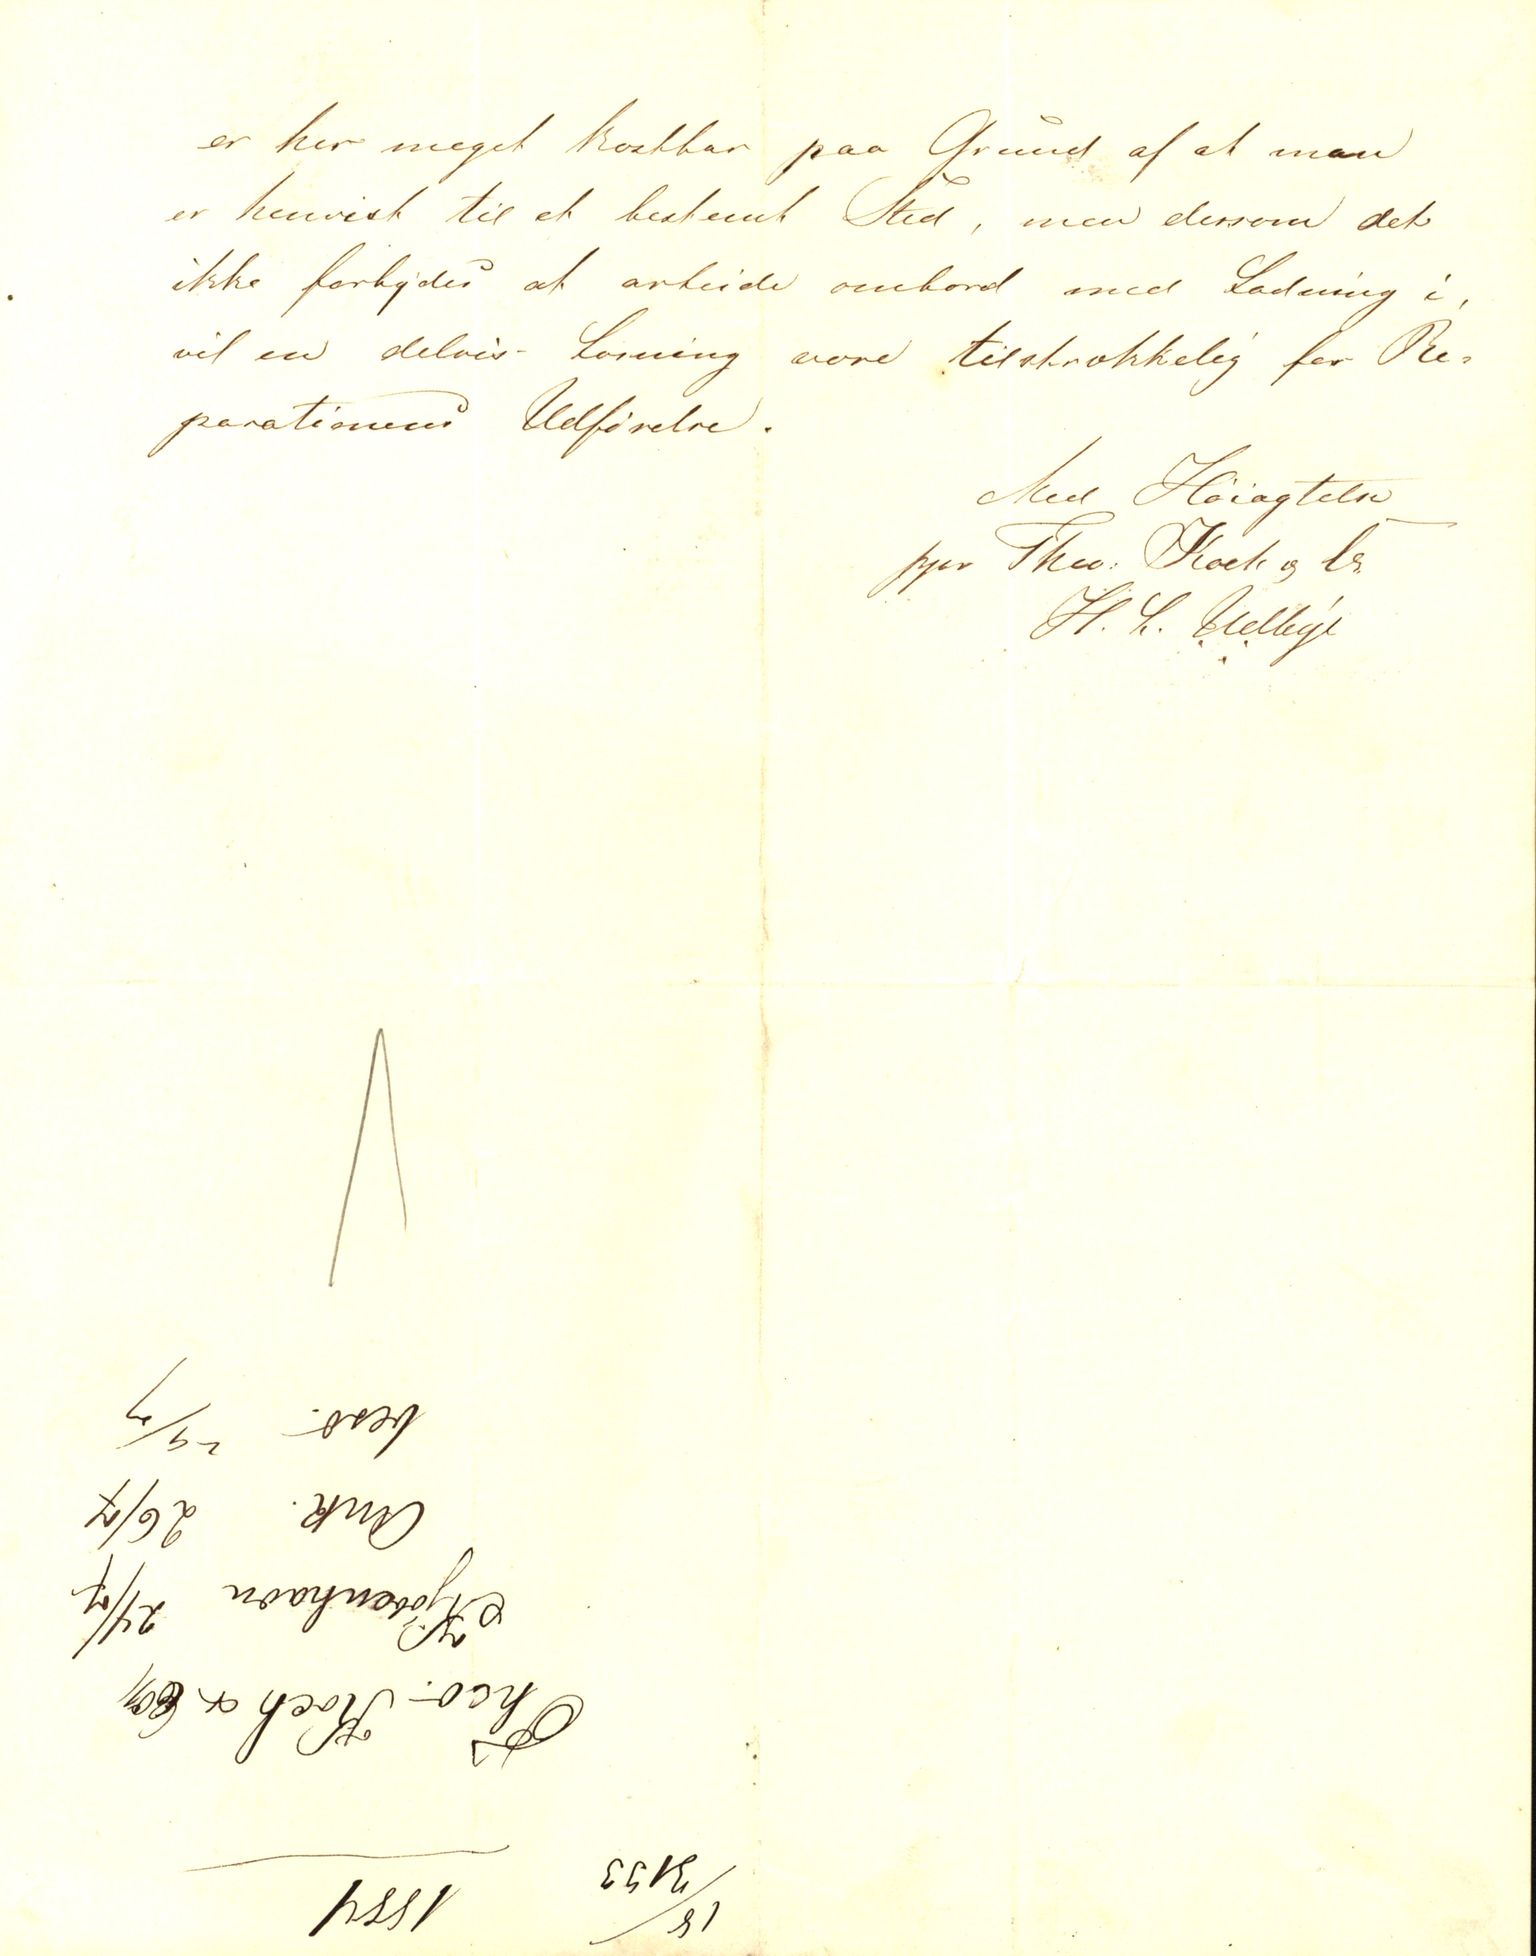 er her meget kostbar paa Grund af at man
er henvist til et bestemt Sted, men dersom det
ikke forbydes at arbeide ombord med Ladning i,
vil en delvis Losning være tilstrækkelig for Re-
parationens Udførelse.
Med Høiagtelse
pper Theo: Koch og Co.
H. L.
1884
Theo. Koch & Co
Kjøbenhavn 24/7
Ank. 26/7
besv. 29/7